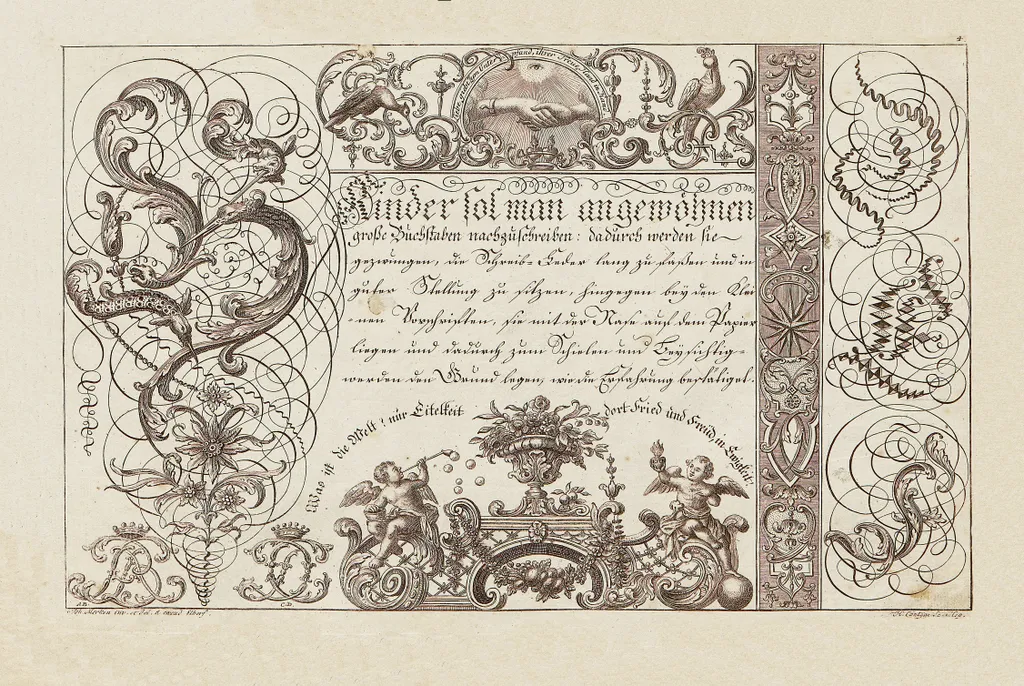 4.
Kinder sol man angewöhnen
große Buchstaben nachzuschreiben: dadurch werden sie
gezwungen, die Schreib-Feder lang zu faßen und in
guter Stellung zu sitzen, hingegen bey den Klei-
-nen Vorschrifften, sie mit der Nase auf dem Papier
liegen und dadurch zum Schielen und
werden den Grund legen, wie die Erfahrung bestätiget.
Was ist die Welt? nur Eitelkeit
dort Fried und Freud, in Ewigkeit.
A.B.
C.D.
Joh. Merken inv. et del. a
sculps.